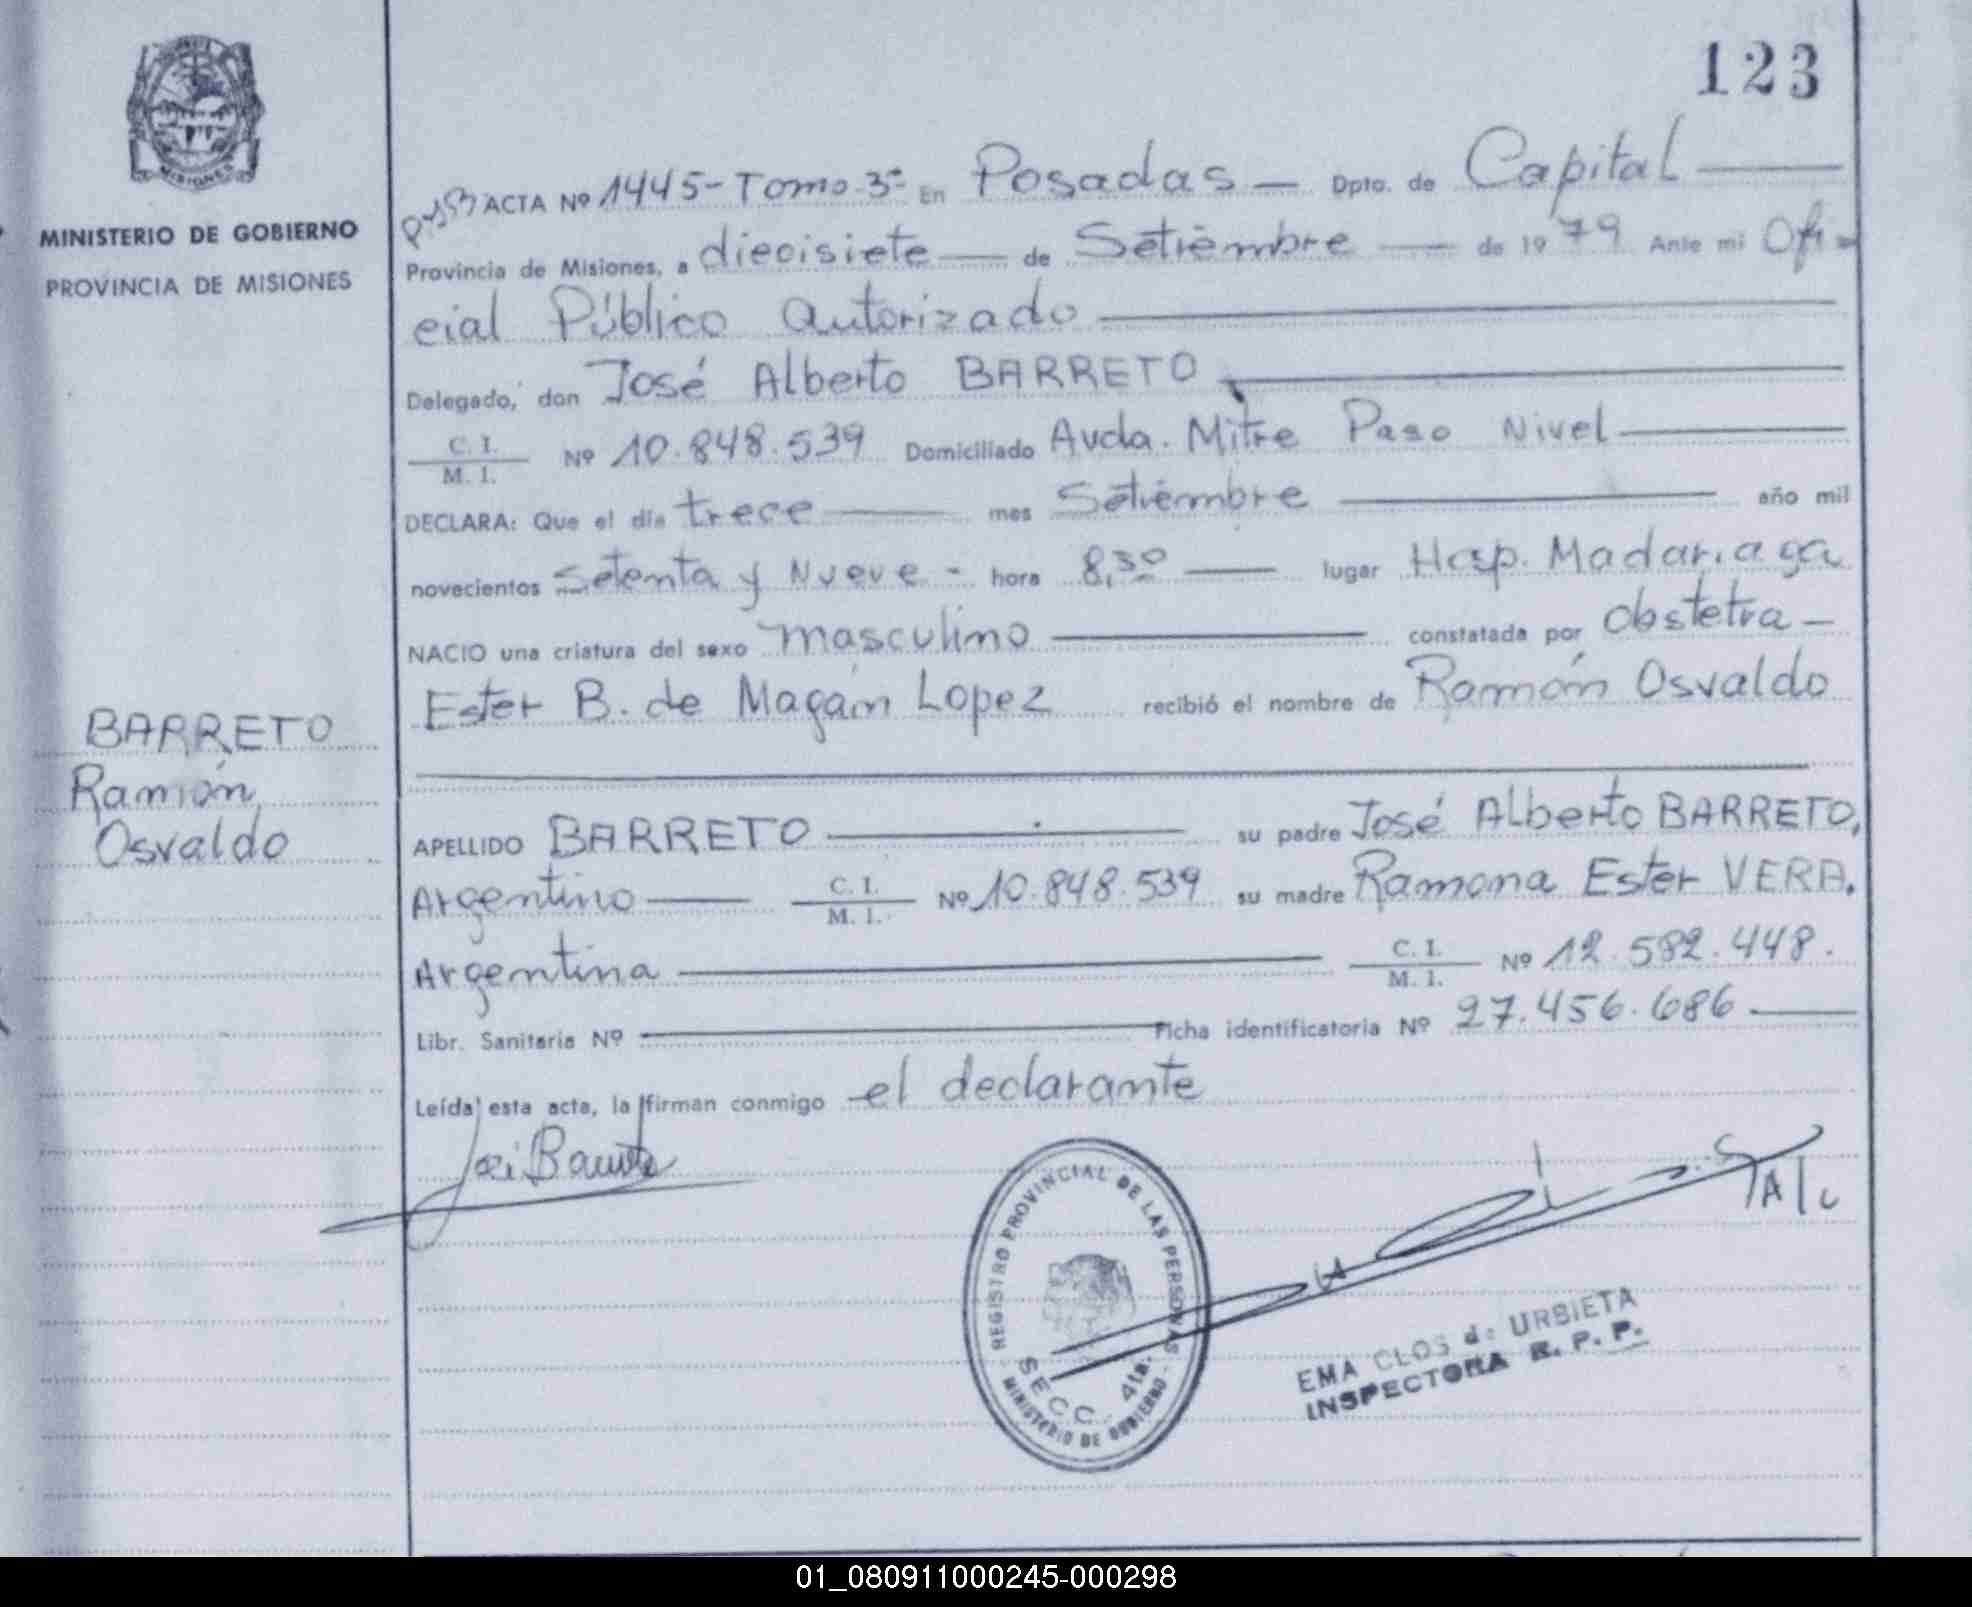 123
MISIONES
MINISTERIO DE GOBIERNO
PROVINCIA DE MISIONES
ACTA Nº 1445 - Tomo 3º En Posadas — Dpto. de Capital —
Provincia de Misiones, a diecisiete — de Setiembre — de 1979 Ante mi Ofi-
cial Público Autorizado —
Delegado, don José Alberto BARRETO —
C. I.
M. I. Nº 10.848.539 Domiciliado Avda. Mitre Paso Nivel —
DECLARA: Que el día trece — mes Setiembre — año mil
novecientos Setenta y Nueve - hora 8,30 — lugar Hosp. Madariaga
NACIO una criatura del sexo masculino — constatada por Obstetra —
Ester B. de Magán Lopez recibió el nombre de Ramón Osvaldo
BARRETO
Ramón
Osvaldo
APELLIDO BARRETO — su padre José Alberto BARRETO,
Argentino — C. I.
M. I. Nº 10.848.539 su madre Ramona Ester VERA.
Argentina — C. I.
M. I. Nº 12.582.448.
Libr. Sanitaria Nº — Ficha identificatoria Nº 27.456.686 —
Leída esta acta, la firman conmigo el declarante
REGISTRO PROVINCIAL DE LAS PERSONAS
SECC. 4ta.
MINISTERIO DE GOBIERNO
EMA CLOS de URBIETA
INSPECTORA R. P. P.
01_080911000245-000298